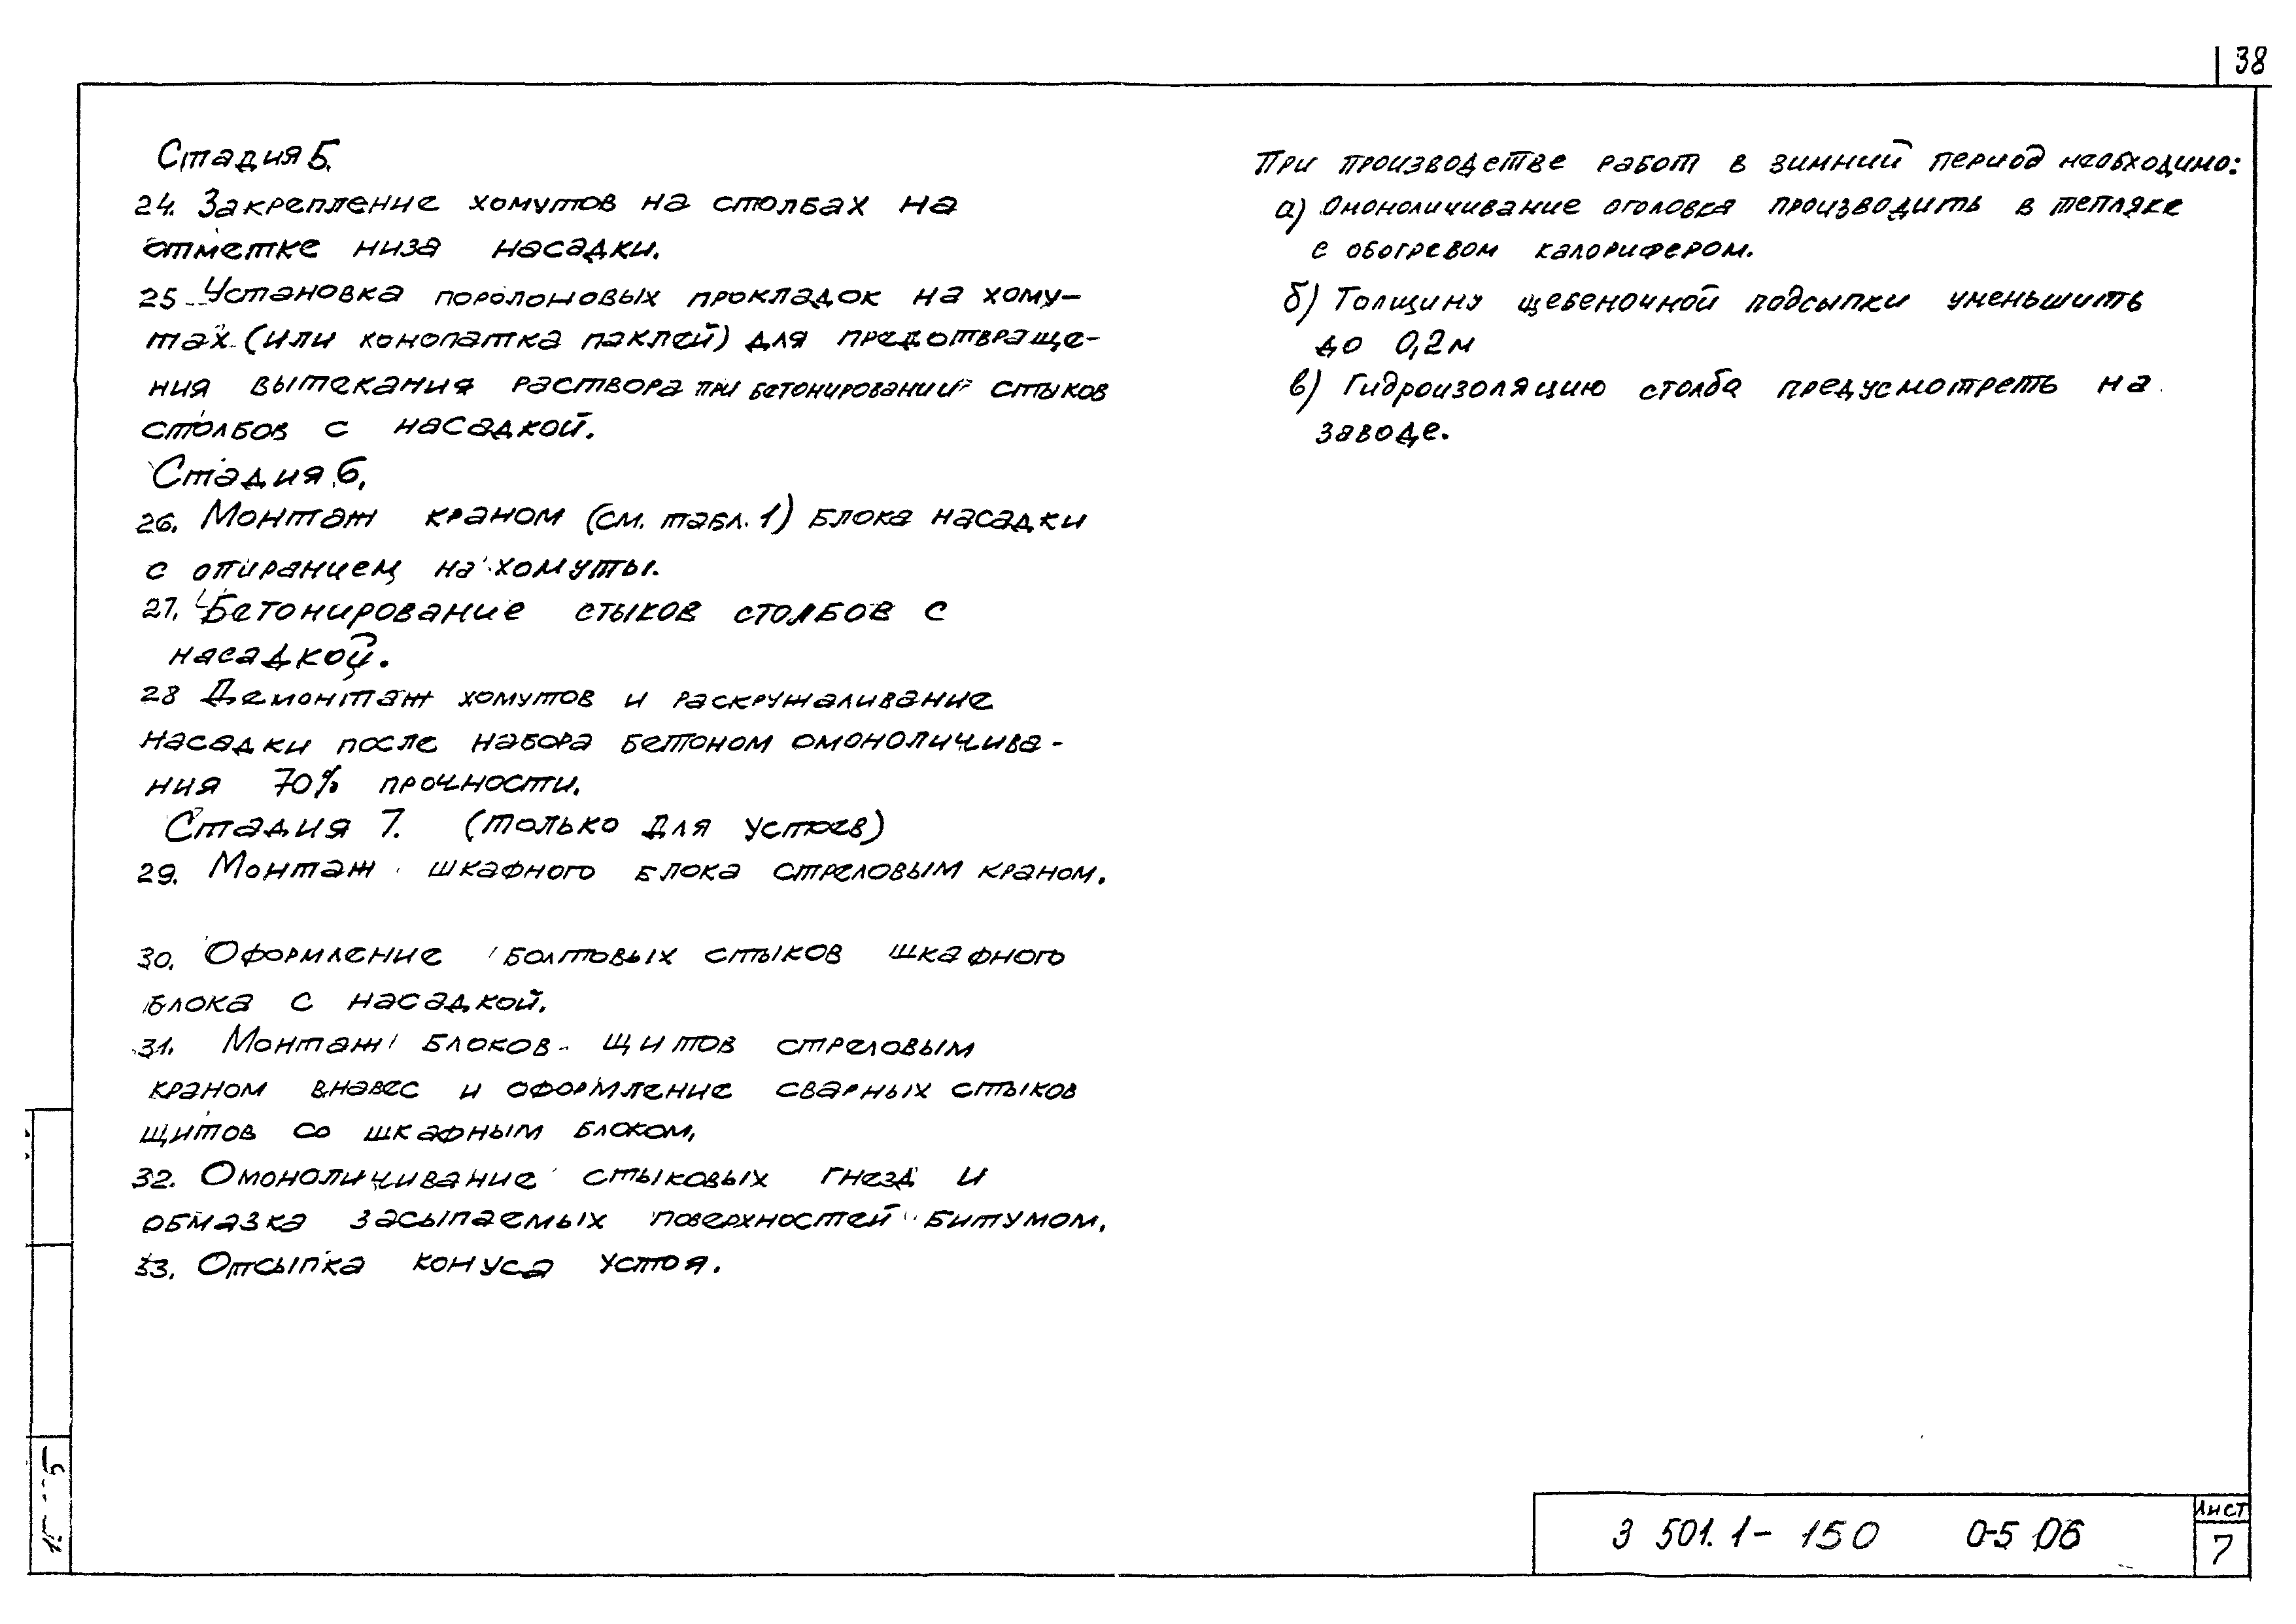 38
Стадия 5.
24. Закрепление хомутов на столбах на
отметке низа насадки.
25 Установка поролоновых прокладок на хому-
тах (или конопатка паклей) для предотвраще-
ния вытекания раствора при бетонировании стыков
столбов с насадкой.
Стадия 6.
26. Монтаж краном (см. табл. 1) блока насадки
с опиранием на хомуты.
27. Бетонирование стыков столбов с
насадкой.
28 Демонтаж хомутов и раскружаливание
насадки после набора бетоном омоноличива-
ния 70% прочности.
Стадия 7. (только для устоев)
29. Монтаж шкафного блока стреловым краном.
30. Оформление болтовых стыков шкафного
блока с насадкой.
31. Монтаж блоков-щитов стреловым
краном внавес и оформление сварных стыков
щитов со шкафным блоком.
32. Омоноличивание стыковых гнезд и
обмазка засыпаемых поверхностей битумом.
33. Отсыпка конуса устоя.
При производстве работ в зимний период необходимо:
а) Омоноличивание оголовка производить в тепляке
с обогревом калорифером.
б) Толщину щебеночной подсыпки уменьшить
до 0,2м
в) Гидроизоляцию столба предусмотреть на
заводе.
3 501.1-150 0-5 06
Лист
7